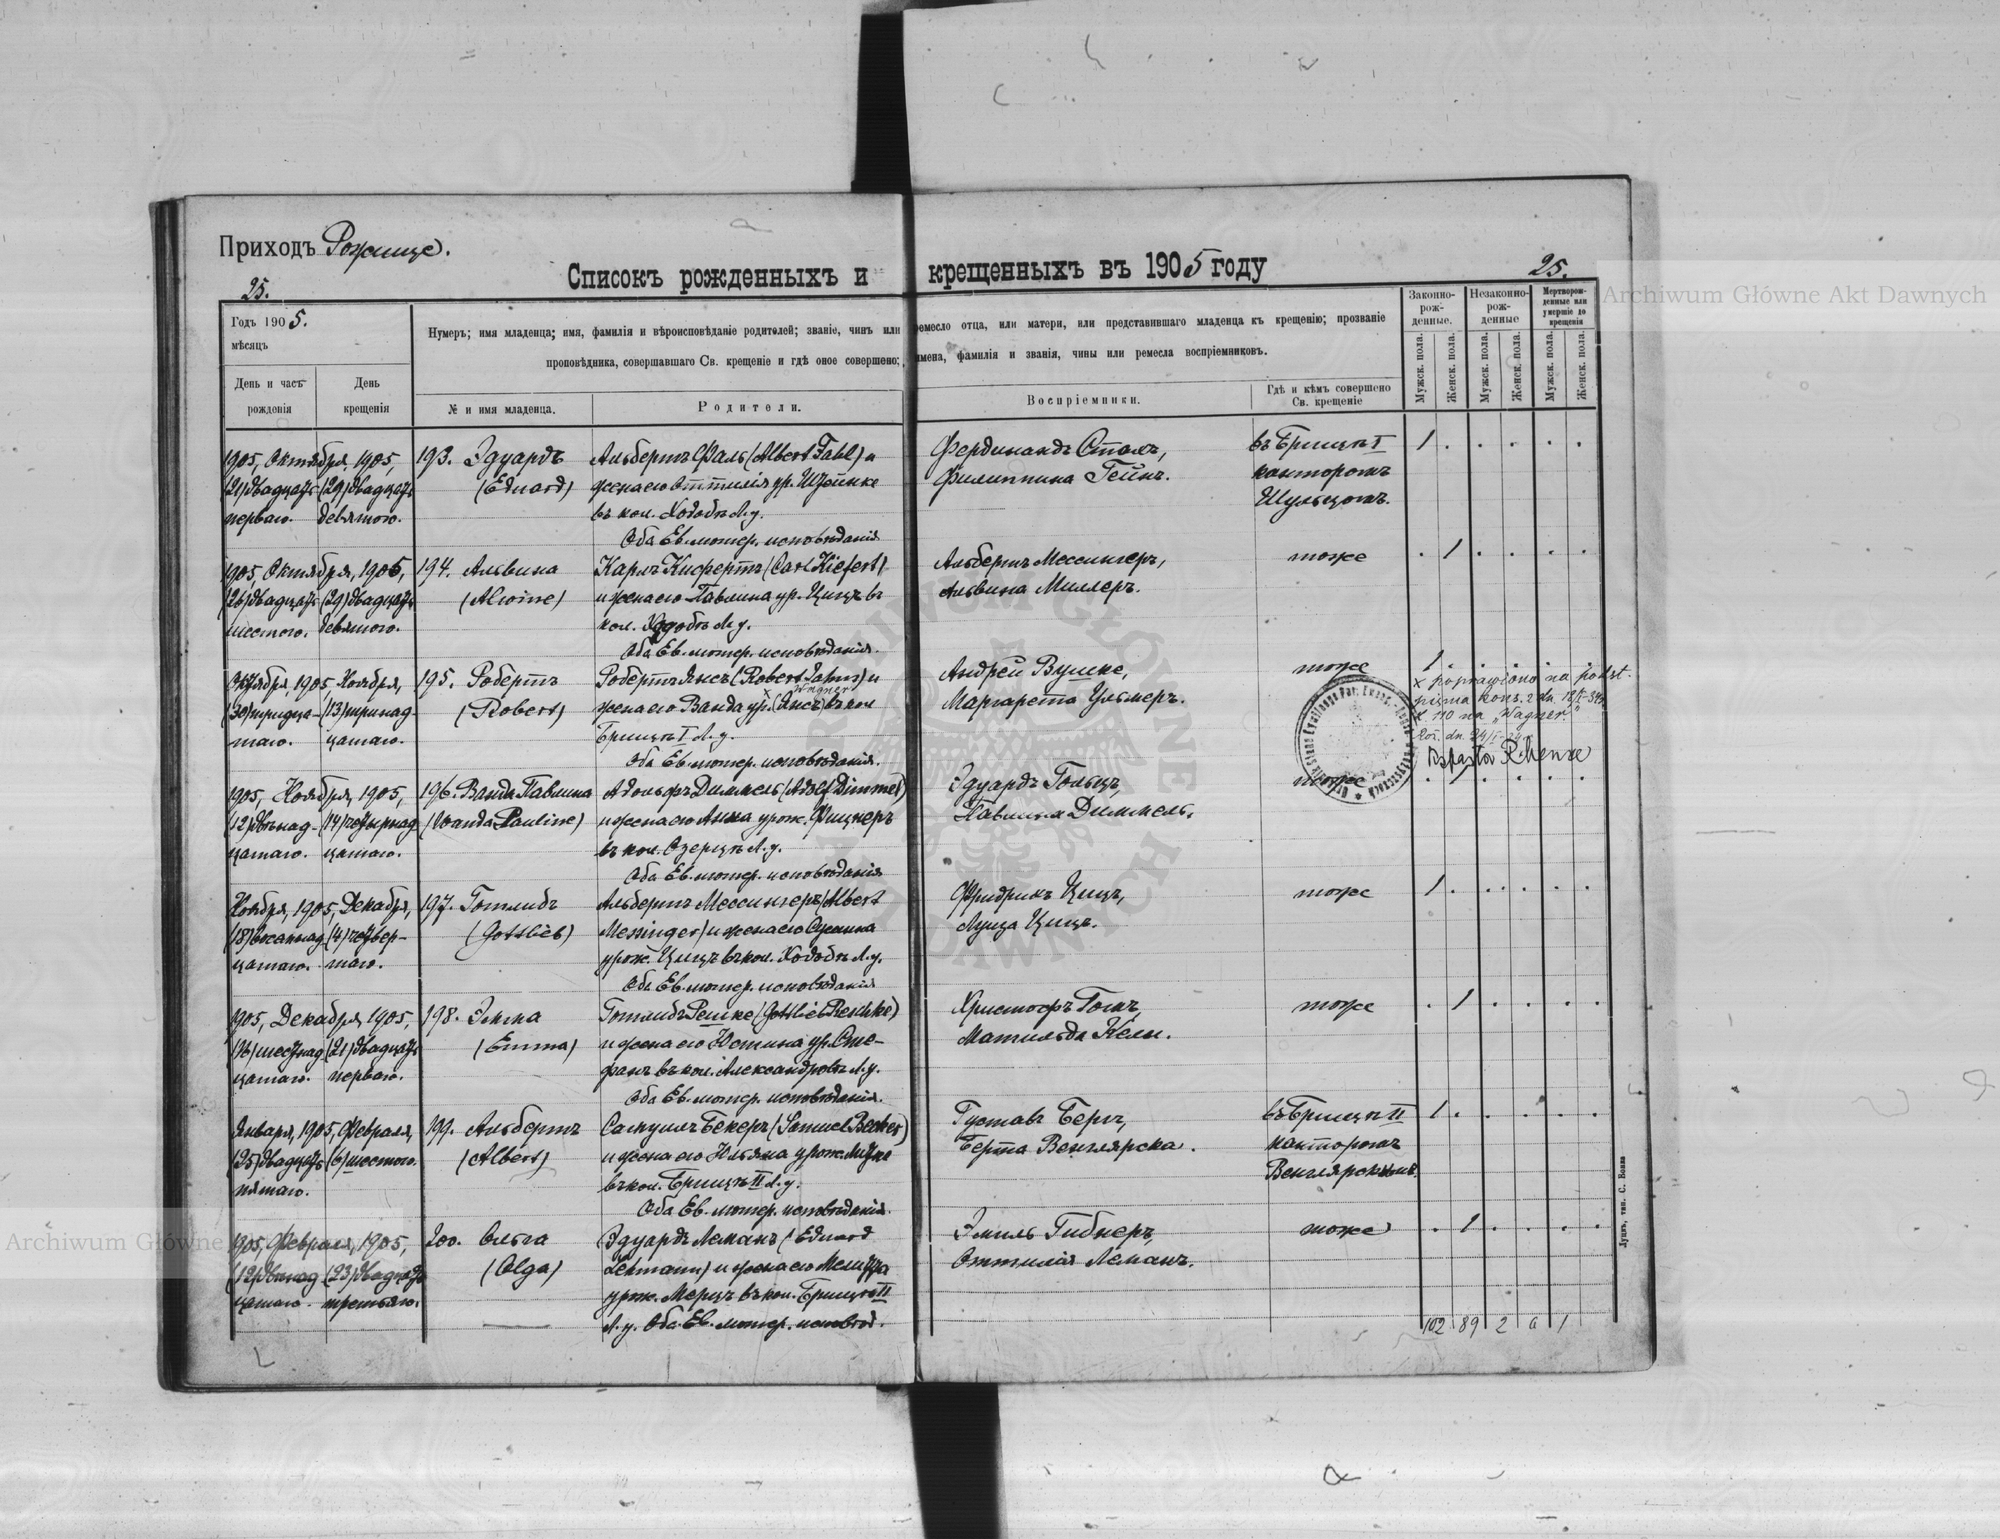 Приходъ Рожище.
Списокъ рожденныхъ и крещенныхъ въ 1905 году
25.
25.
Годъ 1905.
мѣсяцъ
День и часъ рожденія
День крещенія
Нумеръ; имя младенца; имя, фамилія и вѣроисповѣданіе родителей; званіе, чинъ или ремесло отца, или матери, или представившаго младенца къ крещенію; прозваніе
проповѣдника, совершавшаго Св. крещеніе и гдѣ оное совершено; имена, фамилія и званія, чины или ремесла воспріемниковъ.
№ и имя младенца.
Родители.
Воспріемники.
Гдѣ и кѣмъ совершено Св. крещеніе
Законно-рож-денные.
Незаконно-рож-денные
Мертворож-денные или умершіе до крещенія
Мужск. пола.
Женск. пола.
Мужск. пола.
Женск. пола.
Мужск. пола.
Женск. пола.
1905, Октября, 1905, 193. Эдуардъ Альбертъ Фаль (Albert Fahl) и Фердинандъ Столъ, въ Брищѣ I 1
(21) двадцать (29) двадцать (Eduard) жена его Оттилія ур. Штейнке Филиппина Гейнъ. канторомъ
перваго. девятого. въ кол. Ходобѣ Л.у. Шульцомъ.
Оба Ев. лютер. исповѣданія
1905, Октября, 1905, 194. Альвина Карлъ Кифертъ (Carl Kiefert) Альбертъ Мессингеръ, тоже 1
(26) двадцать (29) двадцать (Alwine) и жена его Павлина ур. Цицъ въ Альвина Миллеръ.
шестого. девятого. кол. Ходобѣ Л.у.
Оба Ев. лютер. исповѣданія.
Октября, 1905, Ноября, 195. Робертъ Робертъ Янсъ (Robert Jahns) и Андрей Вушке, тоже 1
Wagner
(30) тридца- (13) тринад- (Robert) жена его Ванда ур. (Янсъ) въ кол Маргарета Ульмеръ.
таго. цатаго. Брищѣ I Л.у.
Оба Ев. лютер. исповѣданія.
x poprawiono na podst.
pisma kons. z dn. 18/I-34r.
№ 110 na "Wagner."
Roż. dn. 24/I-34r.
Pastor R. Henke
1905, Ноября, 1905, 196. Ванда Павлина Адольфъ Диммель (Adolf Dimmel) Эдуардъ Гольцъ, тоже 1
(12) двѣнад- (14) четырнад (Wanda Pauline) и жена его Анна урож. Фицнеръ Павлина Диммель.
цатаго. цатаго. въ кол. Озерцѣ Л.у.
Оба Ев. лютер. исповѣданія
Ноября, 1905, Декабря, 197. Готлибъ Альбертъ Мессингеръ (Albert Фридрихъ Цицъ, тоже 1
(18) восемнад (4) четвер- (Gottlieb) Messinger) и жена его Сузанна Луиза Цицъ.
цатаго. таго. урож. Цицъ въ кол. Ходобѣ Л.у.
Оба Ев. лютер. исповѣданія
1905, Декабря, 1905, 198. Эмма Готлибъ Решке (Gottlieb Reschke) Христофъ Гокъ, тоже 1
(16) шестнад (21) двадцать (Emma) и жена его Юстина ур. Сте- Матильда Кели.
цатаго. перваго. фанъ въ кол. Александровкѣ Л.у.
Оба Ев. лютер. исповѣданія.
Января, 1905, Февраля, 199. Альбертъ Самуилъ Бекеръ (Samuel Becker) Густавъ Бергъ, въ Брищѣ II 1
(25) двадцать (6) шестого. (Albert) и жена его Юльяна урож. Берта Венглярска. канторомъ
пятаго. въ кол. Брищѣ II Л.у. Венглярскимъ.
Оба Ев. лютер. исповѣданія.
1905, Февраля, 1905, 200. Ольга Эдуардъ Леманъ (Eduard Эмиль Гибнеръ, тоже 1
(12) двѣнад (23) двадцать (Olga) Lehmann) и жена его Мелитта Оттилія Леманъ.
цатаго. третьяго. урож. Мерцъ въ кол. Брищѣ II
Л.у. Оба Ев. лютер. исповѣд.
102 89 2 0 1
Луцкъ, тип. С. Бокка
Archiwum Główne Akt Dawnych
Archiwum Główne